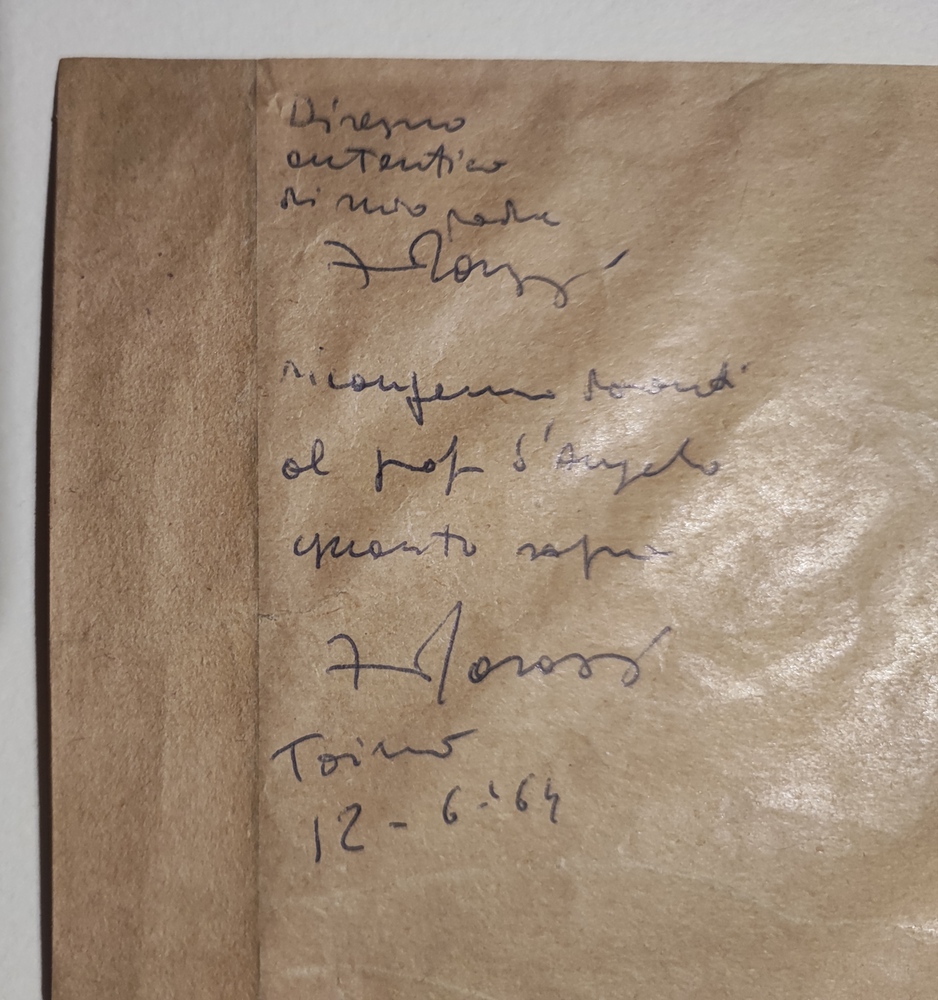 Disegno
autentico
di mio padre
riconfermo davanti
al prof D'Angelo
quanto sopra
Torino
12-6-'64